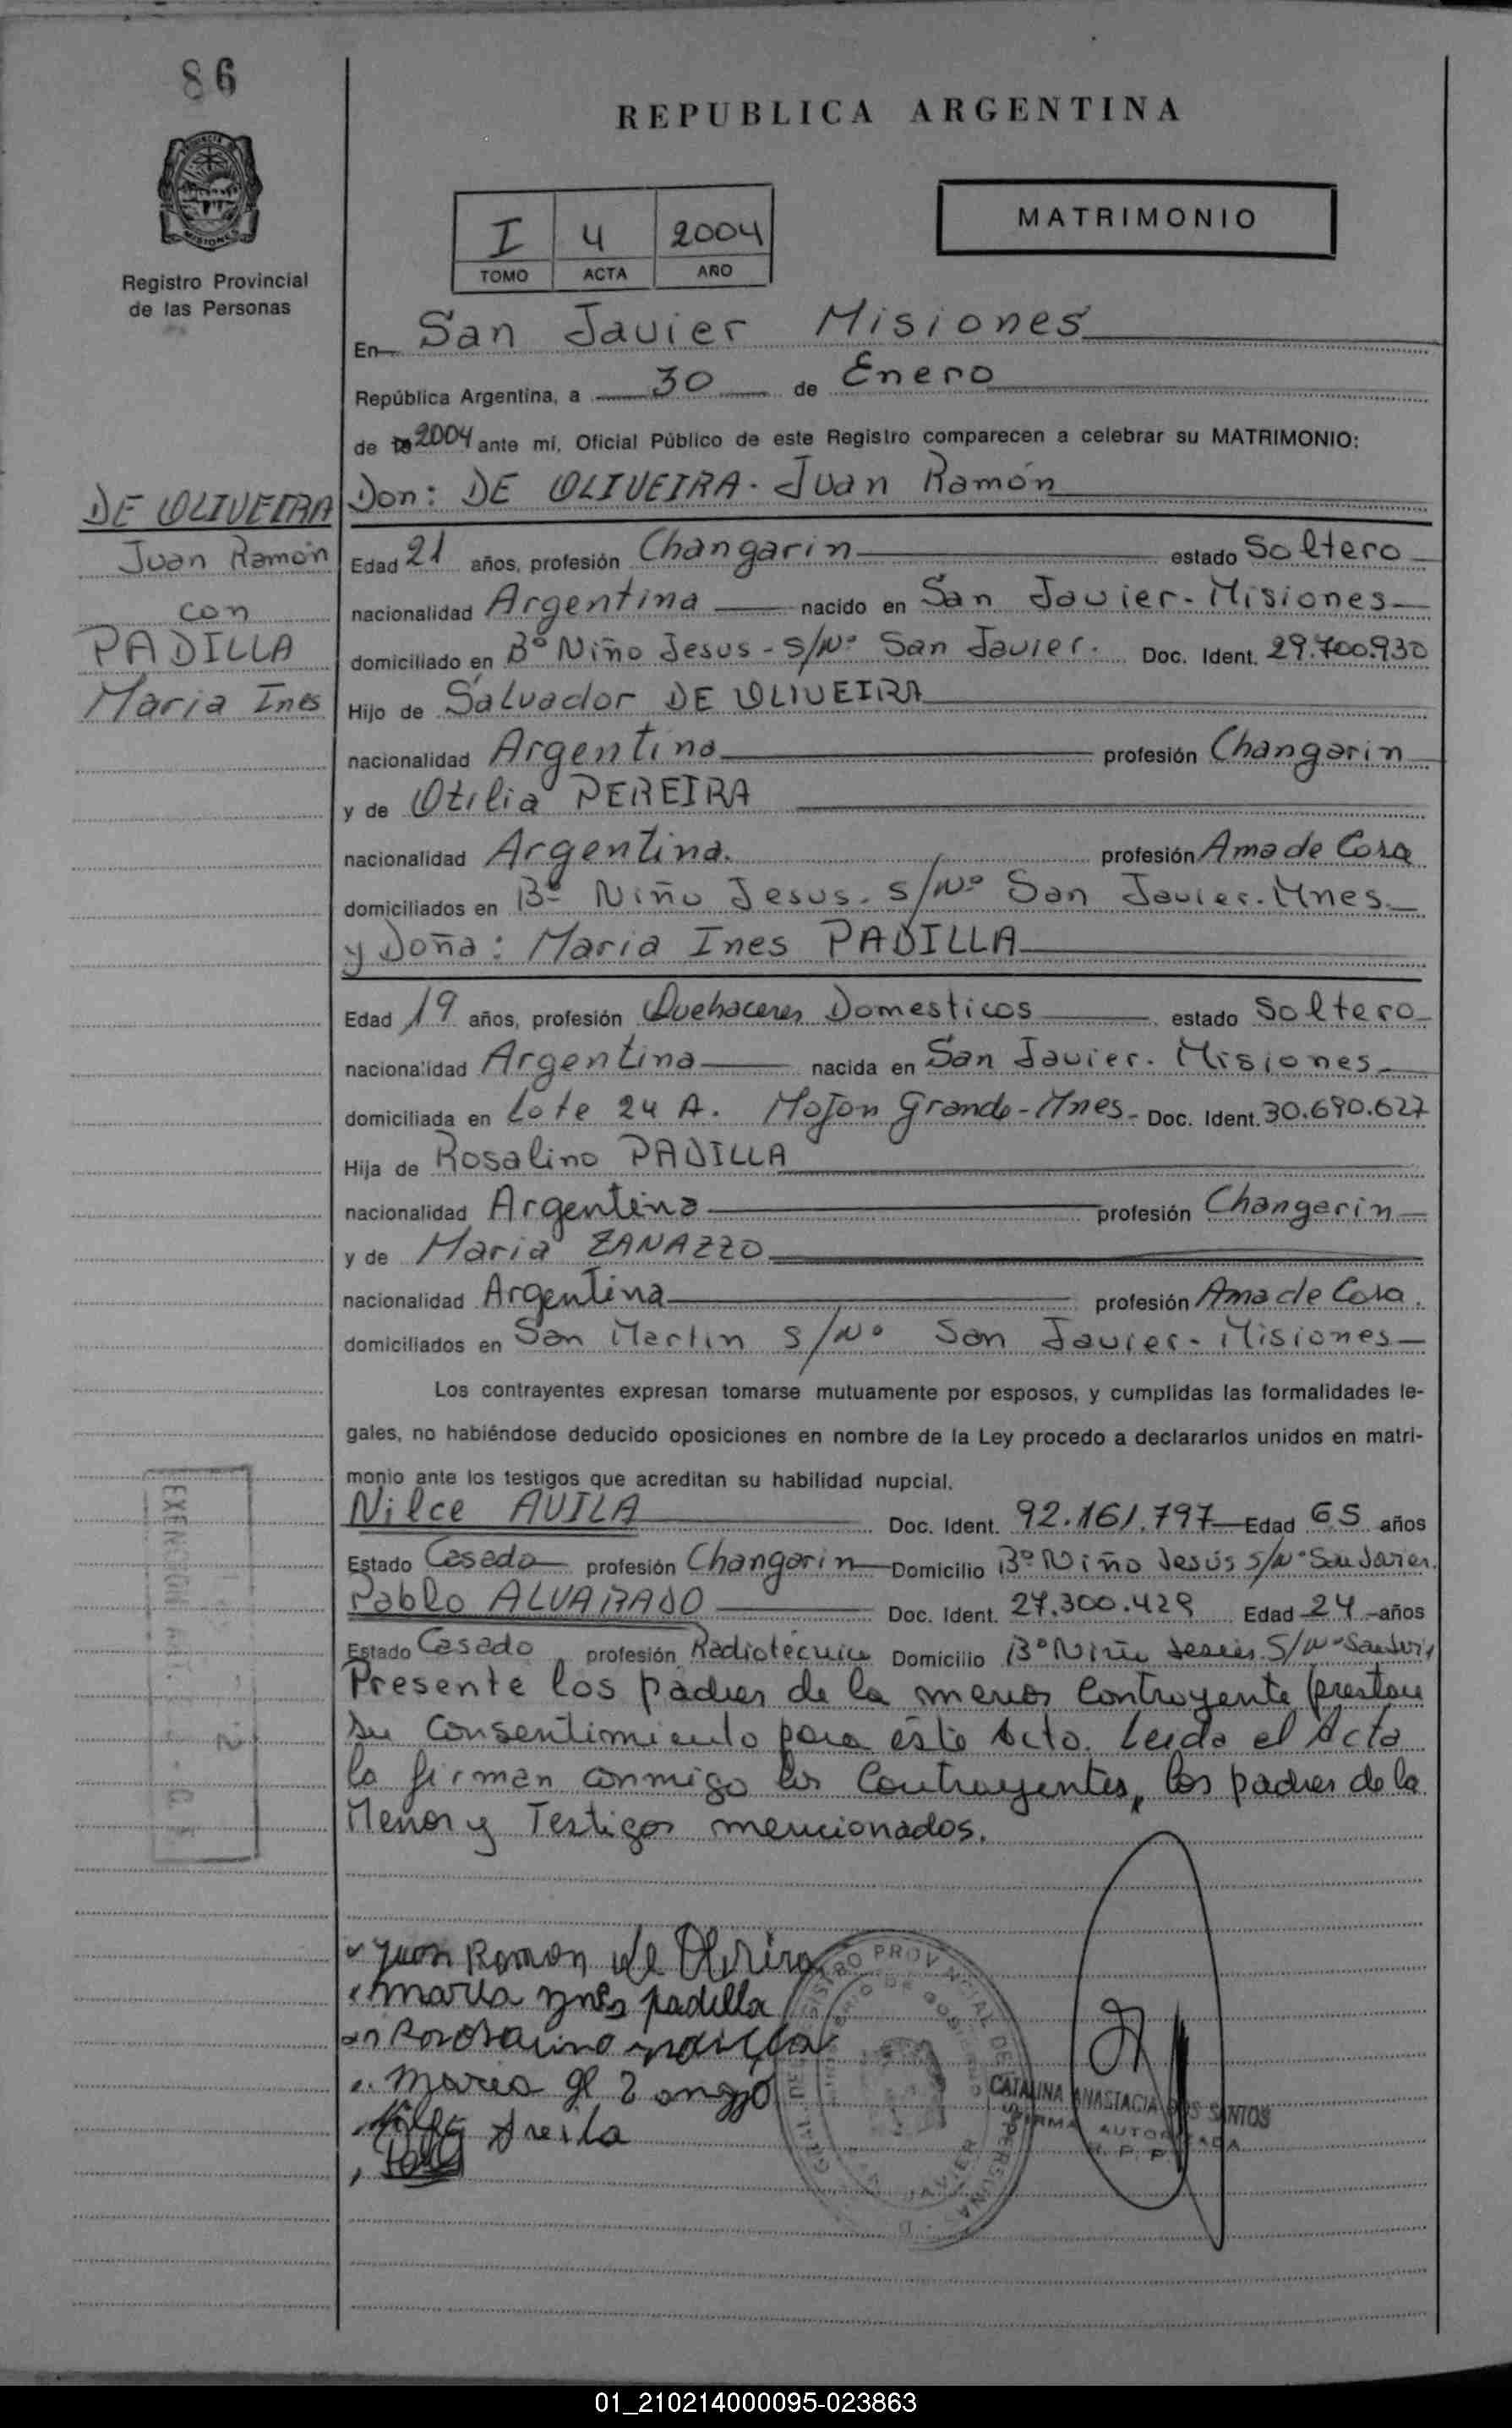 86
REPUBLICA ARGENTINA
PROVINCIA DE
MISIONES
Registro Provincial
de las Personas
I 4 2004
TOMO ACTA AÑO
MATRIMONIO
En San Javier Misiones
República Argentina, a 30 de Enero
de 2004 ante mí, Oficial Público de este Registro comparecen a celebrar su MATRIMONIO:
DE OLIVEIRA
Juan Ramón
con
PADILLA
Maria Ines
Don: DE OLIVEIRA. Juan Ramón
Edad 21 años, profesión Changarin estado Soltero
nacionalidad Argentina nacido en San Javier-Misiones
domiciliado en Bº Niño Jesus - S/Nº San Javier. Doc. Ident. 29.700.930
Hijo de Salvador DE OLIVEIRA
nacionalidad Argentina profesión Changarin
y de Otilia PEREIRA
nacionalidad Argentina. profesión Ama de Casa
domiciliados en Bº Niño Jesus. S/Nº San Javier. Mnes.
y Doña: Maria Ines PADILLA
Edad 19 años, profesión Quehaceres Domesticos estado Soltero
nacionalidad Argentina nacida en San Javier. Misiones
domiciliada en Lote 24 A. Mojon Grande-Mnes- Doc. Ident. 30.690.627
Hija de Rosalino PADILLA
nacionalidad Argentina profesión Changarin
y de Maria ZANAZZO
nacionalidad Argentina profesión Ama de Casa.
domiciliados en San Martin S/Nº San Javier-Misiones
Los contrayentes expresan tomarse mutuamente por esposos, y cumplidas las formalidades le-
gales, no habiéndose deducido oposiciones en nombre de la Ley procedo a declararlos unidos en matri-
monio ante los testigos que acreditan su habilidad nupcial.
Nilce AVILA Doc. Ident. 92.161.797 Edad 65 años
Estado Casada profesión Changarin Domicilio Bº Niño Jesús S/Nº San Javier.
Pablo ALVARADO Doc. Ident. 27.300.429 Edad 24 años
Estado Casado profesión Radiotécnico Domicilio Bº Niño Jesús S/Nº
Presente los padres de la menor Contrayente prestan
su Consentimiento para este Acto. Leida el Acta
la firman conmigo los Contrayentes, los padres de la
Menor y Testigos mencionados.
Juan Ramon de
maria ynes padilla
maria
Avila
REGISTRO PROVINCIAL DE LAS PERSONAS
SAN JAVIER
CATALINA ANASTACIA DOS SANTOS
FIRMA AUTORIZADA
R. P. P.
01_210214000095-023863